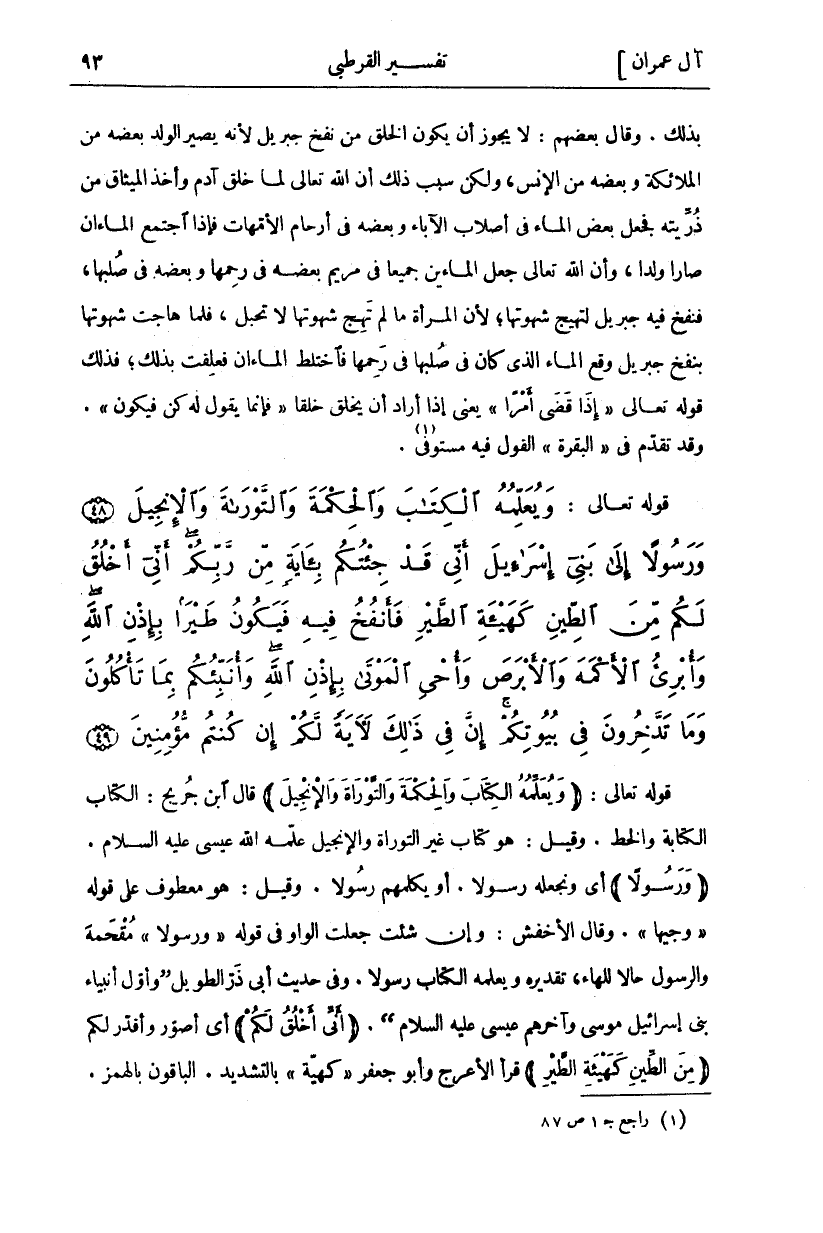 آل عمران ] تفســير القرطبى ٩٣
بذلك . وقال بعضهم : لا يجوز أن يكون الخلق من نفخ جبريل لأنه يصير الولد بعضه من
الملائكة وبعضه من الإنس، ولكن سبب ذلك أن الله تعالى لما خلق آدم وأخذ الميثاق من
ذُرِّيته فجعل بعض الماء فى أصلاب الآباء وبعضه فى أرحام الأمّهات فإذا ٱجتمع الماءان
صارا ولدا ، وأن الله تعالى جعل الماءين جميعا فى مريم بعضــه فى رحمها وبعضه فى صُلبها،
فنفخ فيه جبريل لتهيج شهوتها؛ لأن المـرأة ما لم تَهِج شهوتها لا تحبل ، فلما هاجت شهوتها
بنفخ جبريل وقع الماء الذى كان فى صُلبها فى رَحمها فٱختلط الماءان فعلِقت بذلك؛ فذلك
قوله تعـالى « إِذَا قَضَى أَمْرًا » يعنى إذا أراد أن يخلق خلقا « فإنما يقول له كن فيكون » .
وقد تقدّم فى « البقرة » القول فيه مستوْفًى(١) .
قوله تعـالى : وَيُعَلِّمُهُ ٱلْكِتَـٰبَ وَٱلْحِكْمَةَ وَٱلتَّوْرَىٰةَ وَٱلْإِنجِيلَ ۝٤٨
وَرَسُولًا إِلَىٰ بَنِىٓ إِسْرَٰٓءِيلَ أَنِّى قَدْ جِئْتُكُم بِـَٔايَةٍ مِّن رَّبِّكُمْ ۖ أَنِّىٓ أَخْلُقُ
لَكُم مِّنَ ٱلطِّينِ كَهَيْـَٔةِ ٱلطَّيْرِ فَأَنفُخُ فِيهِ فَيَكُونُ طَيْرَۢا بِإِذْنِ ٱللَّهِ ۖ
وَأُبْرِئُ ٱلْأَكْمَهَ وَٱلْأَبْرَصَ وَأُحْىِ ٱلْمَوْتَىٰ بِإِذْنِ ٱللَّهِ ۖ وَأُنَبِّئُكُم بِمَا تَأْكُلُونَ
وَمَا تَدَّخِرُونَ فِى بُيُوتِكُمْ ۚ إِنَّ فِى ذَٰلِكَ لَـَٔايَةً لَّكُمْ إِن كُنتُم مُّؤْمِنِينَ ۝٤٩
قوله تعالى : ﴿ وَيُعَلِّمُهُ الكِتَابَ وَالحِكْمَةَ وَالتَّوْرَاةَ وَالإِنْجِيلَ ﴾ قال ٱبن جُريج : الكتاب
الكتابة والخط . وقيـل : هو كتاب غير التوراة والإنجيل علّمـه الله عيسى عليه السـلام .
﴿ وَرَسُـولًا ﴾ أى ونجعله رسـولا . أو يكلمهم رسُولا . وقيـل : هو معطوف على قوله
« وجيها » . وقال الأخفش : وإن شئت جعلت الواو فى قوله « ورسولا » مُقْحَمة
والرسول حالا للهاء، تقديره ويعلمه الكتاب رسولا . وفى حديث أبى ذَرّ الطويل ”وأوّل أنبياء
بنى إسرائيل موسى وآخرهم عيسى عليه السلام“ . ﴿ أَنِّى أَخْلُقُ لَكُمْ ﴾ أى أصوّر وأقدّر لكم
﴿ مِنَ الطِّينِ كَهَيْئَةِ الطَّيْرِ ﴾ قرأ الأعرج وأبو جعفر « كهيّة » بالتشديد . الباقون بالهمز .
(١) راجع جـ ١ ص ٨٧